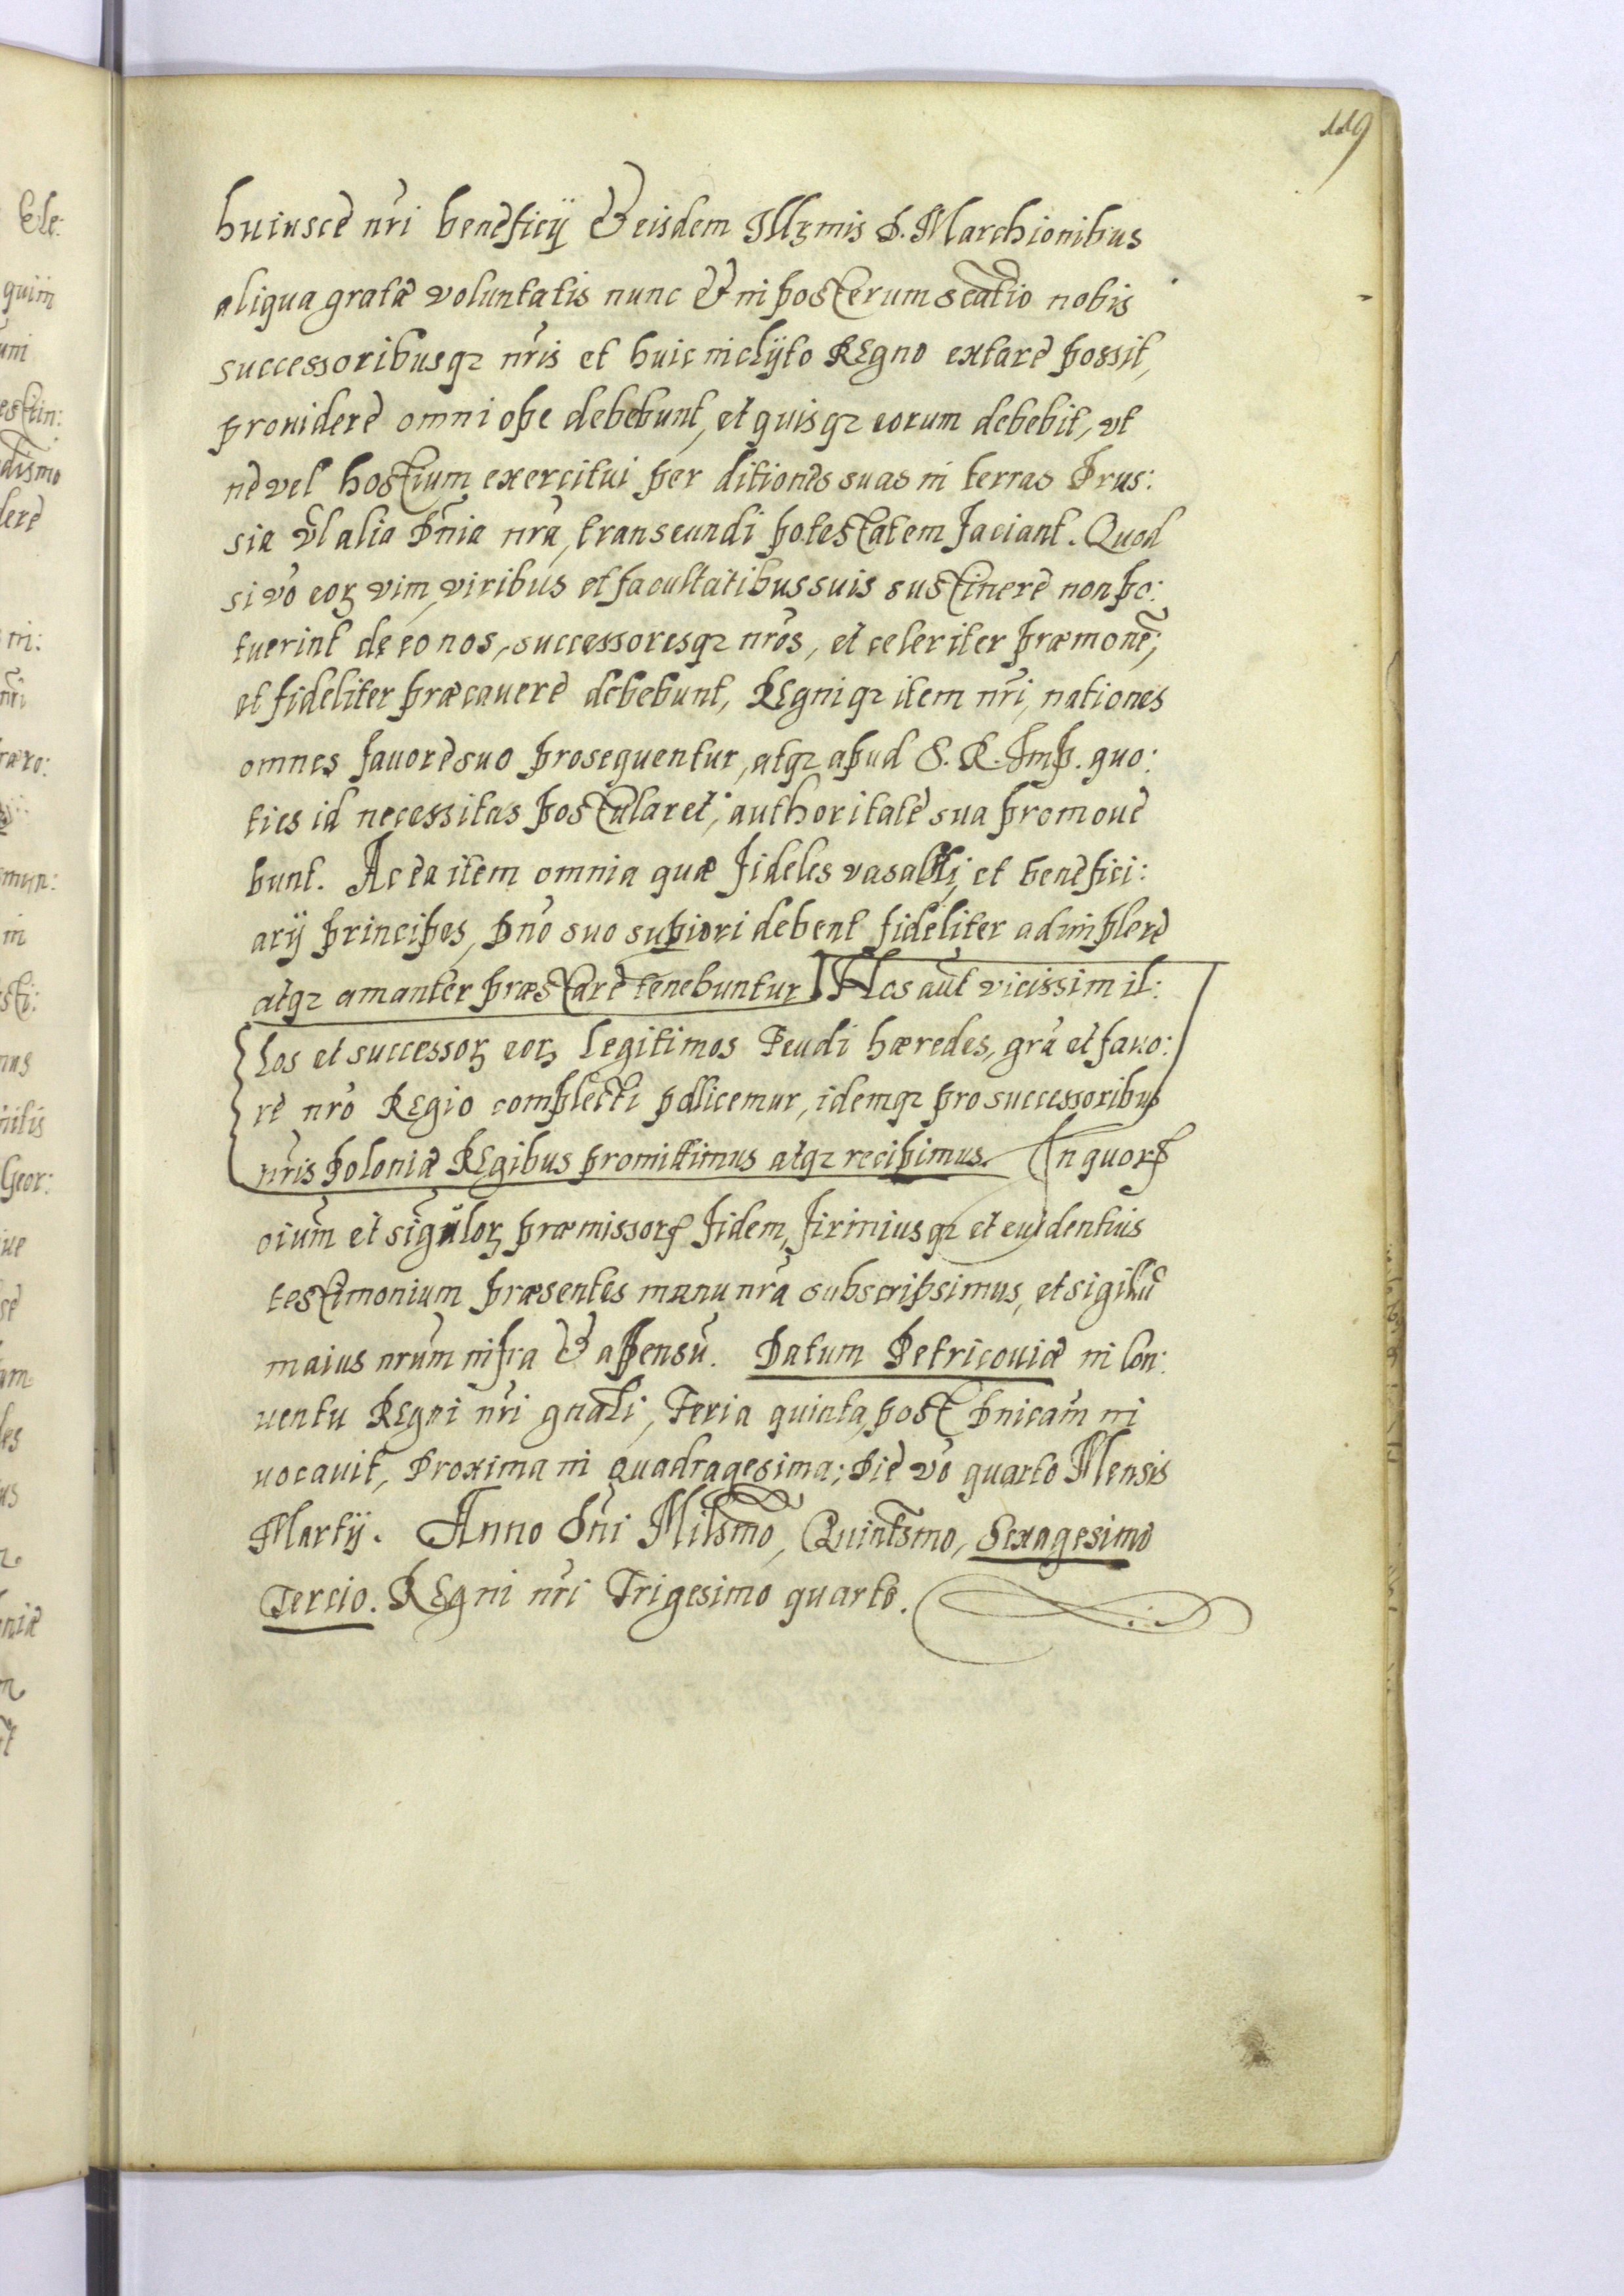 119
huiusce nr̃i beneficÿ & eisdem Illꝫmis D. Marchionibus
aliqua gratæ voluntatis nunc & in posterum nobis
successoribusqꝫ nr̃is et huic inclÿto REgno extare possit,
prouidere omni ope debebunt, et quisqꝫ eorum debebit, vt
ne vel hostium exercitui per ditiones suas in terras Prus:
sia vl̃ alia Dñia nrã, transeundi potestatem faciant. Quod
si vo͂ eoꝝ vim, viribus et facultatibus suis sustinere non po:
tuerint de eo nos, successoresqꝫ nr̃os, et celeriter præmonẽ;
et fideliter præcauere debebunt, REgniqꝫ item nr̃i, nationes
omnes fauore suo prosequentur, atqꝫ apud S. R. Imp. quo:
ties id necessitas postularet, authoritate sua promoue
bunt. Ac ea item omnia quæ fideles vasalli, et benefici:
arÿ principes, Dño suo supiori debent fideliter adimplere
atqꝫ amanter præstare tenebuntur Nos aũt vicissim il:
los et successoꝝ eoꝝ legitimos Feudi hæredes, grã et fauo:
re nr̃o REgio complecti pollicemur, idemqꝫ pro successoribus
nr̃is Poloniæ REgibus promittimus atqꝫ recipimus. In quoꝝ
oium̃ et singuloꝝ præmissoꝝ fidem, firmiusqꝫ et euidentius
testimonium præsentes manu nrã subscripsimus, et sigillũ
maius nrũm infra & apensũ. Datum Petricouiæ in Con:
uentu REgni nr̃i gnãli, Feria quinta, post Dñicam in
uocauit, Proxima in quadragesima; Die vo͂ quarto Mensis
Martÿ. Anno Dñi Milsmo, Quintsmo, Sexagesimo
Tercio. REgni nr̃i Trigesimo quarto.